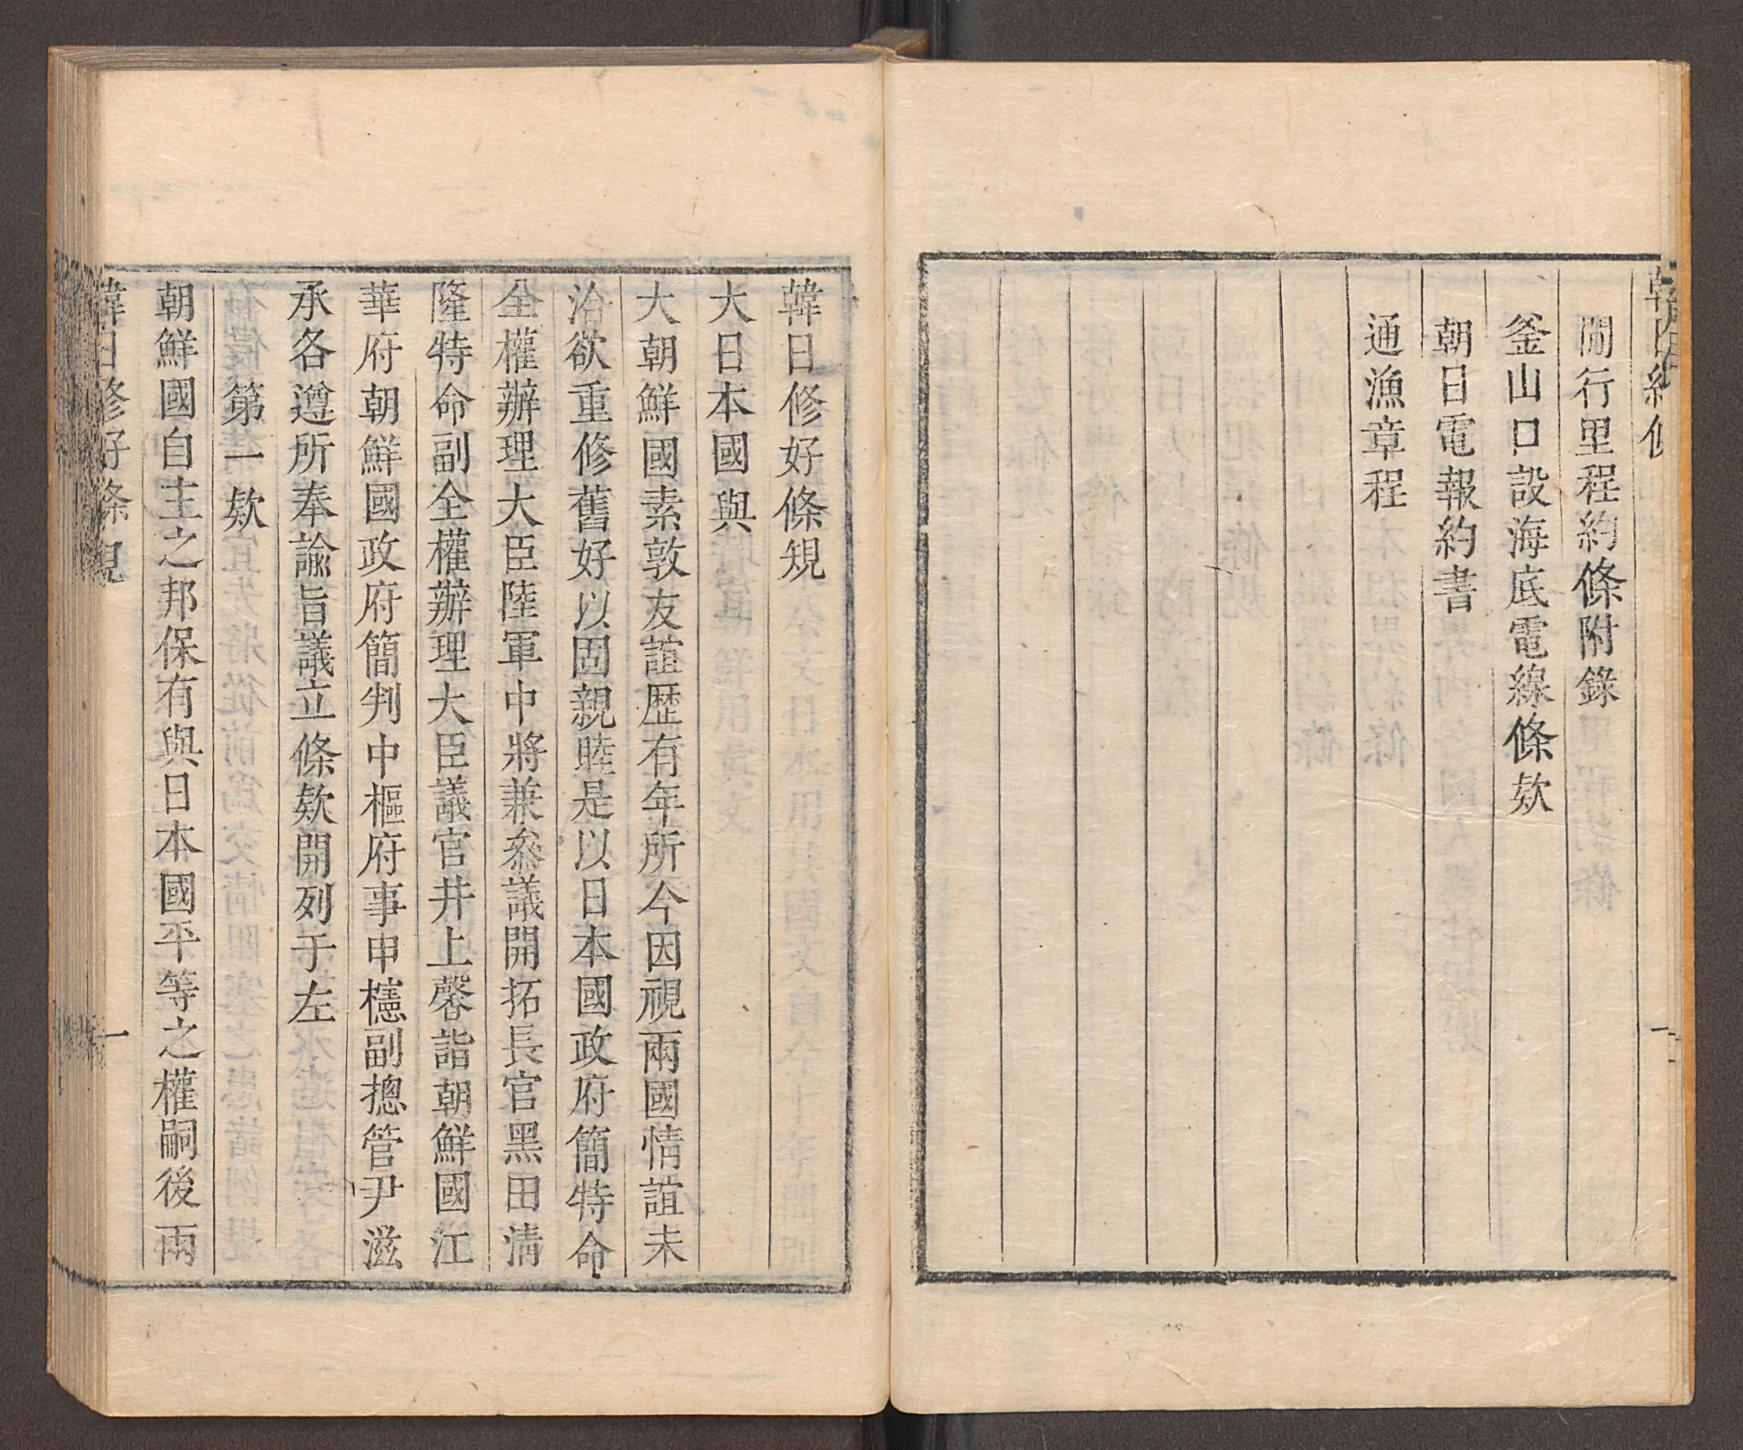 間行里程約條附錄
釜山口設海底電線條欵
朝日電報約書
通漁章程
一
韓日修好條規
大日本國與
大朝鮮國素敦友誼歷有年所今因視兩國情誼未
洽欲重修舊好以固親睦是以日本國政府簡特命
全權辦理大臣陸軍中將兼叅議開拓長官黑田清
隆特命副全權辦理大臣議官井上馨詣朝鮮國江
華府朝鮮國政府簡判中樞府事申櫶副摠管尹滋
承各遵所奉諭旨議立條欵開列于左
第一欵
朝鮮國自主之邦保有與日本國平等之權嗣後兩
韓日修好條規
一